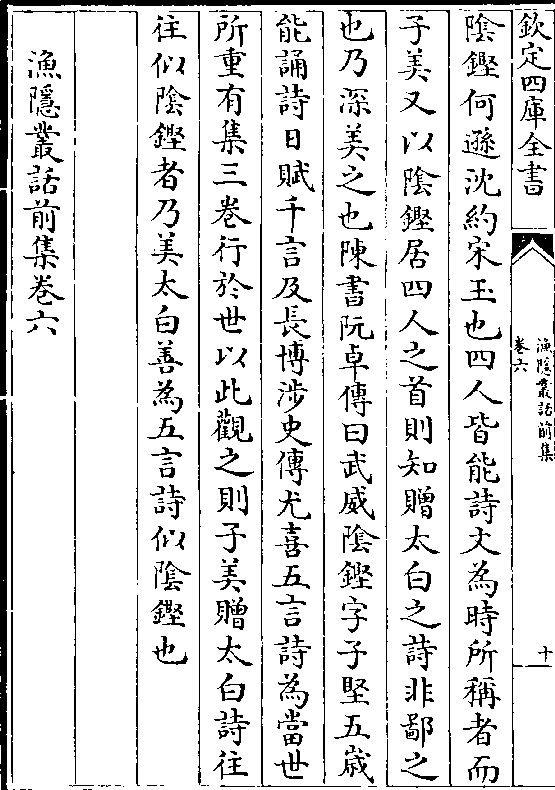 欽定四庫全書
漁隱叢話前集
卷六
十
陰鏗何遜沈約宋玉也四人皆能詩文為時所稱者而
子美又以陰鏗居四人之首則知贈太白之詩非鄙之
也乃深美之也陳書阮卓傳曰武威陰鏗字子堅五歲
能誦詩日賦千言及長博涉史傳尤喜五言詩為當世
所重有集三卷行於世以此觀之則子美贈太白詩往
往似陰鏗者乃美太白善為五言詩似陰鏗也
漁隱叢話前集卷六